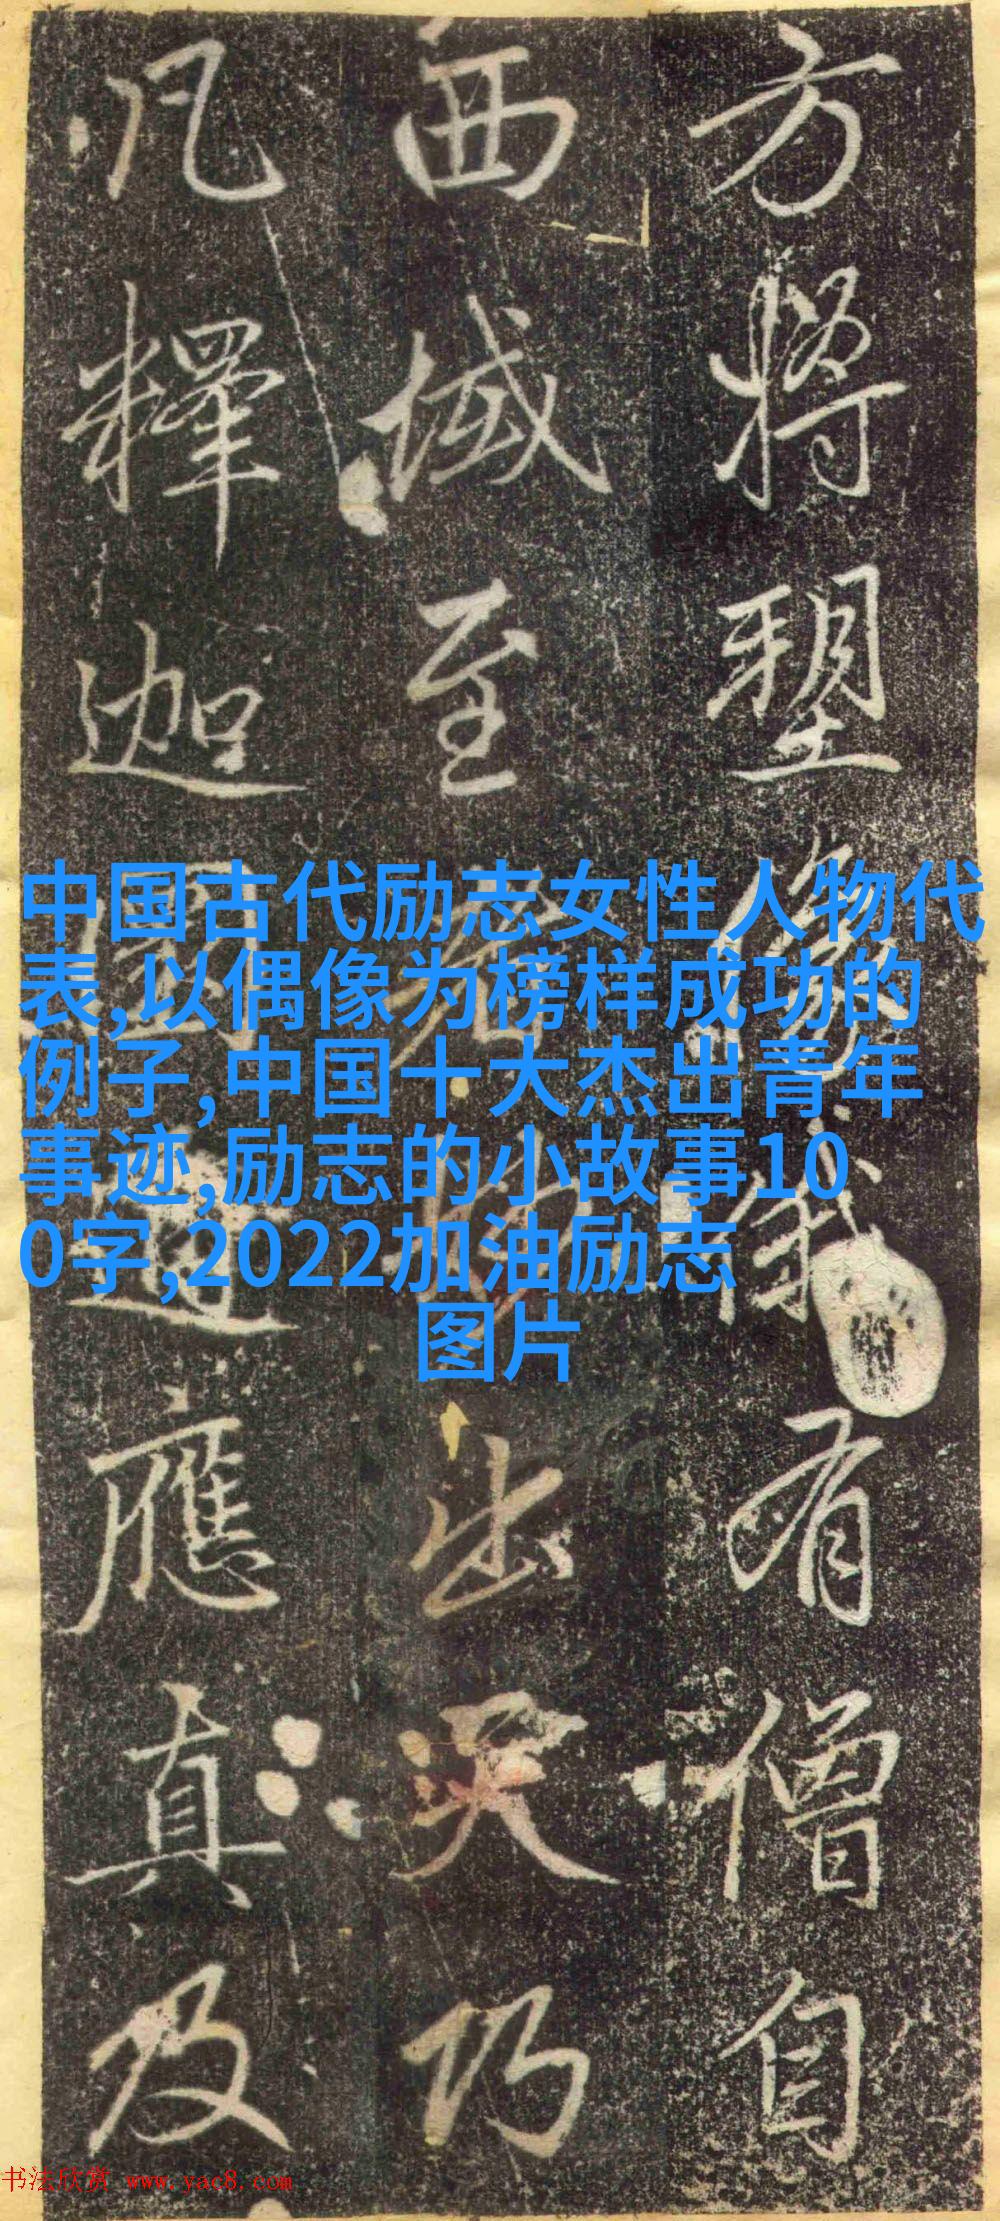 方將塑像儀有僧自
西域至出乃
凡釋迦應真及
中国古代励志女性人物代
表,以偶像为榜样成功的
例子,中国十大杰出青年
事迹,励志的小故事10
0字,2022加油励志
图片
书法欣赏 www.yac8.com